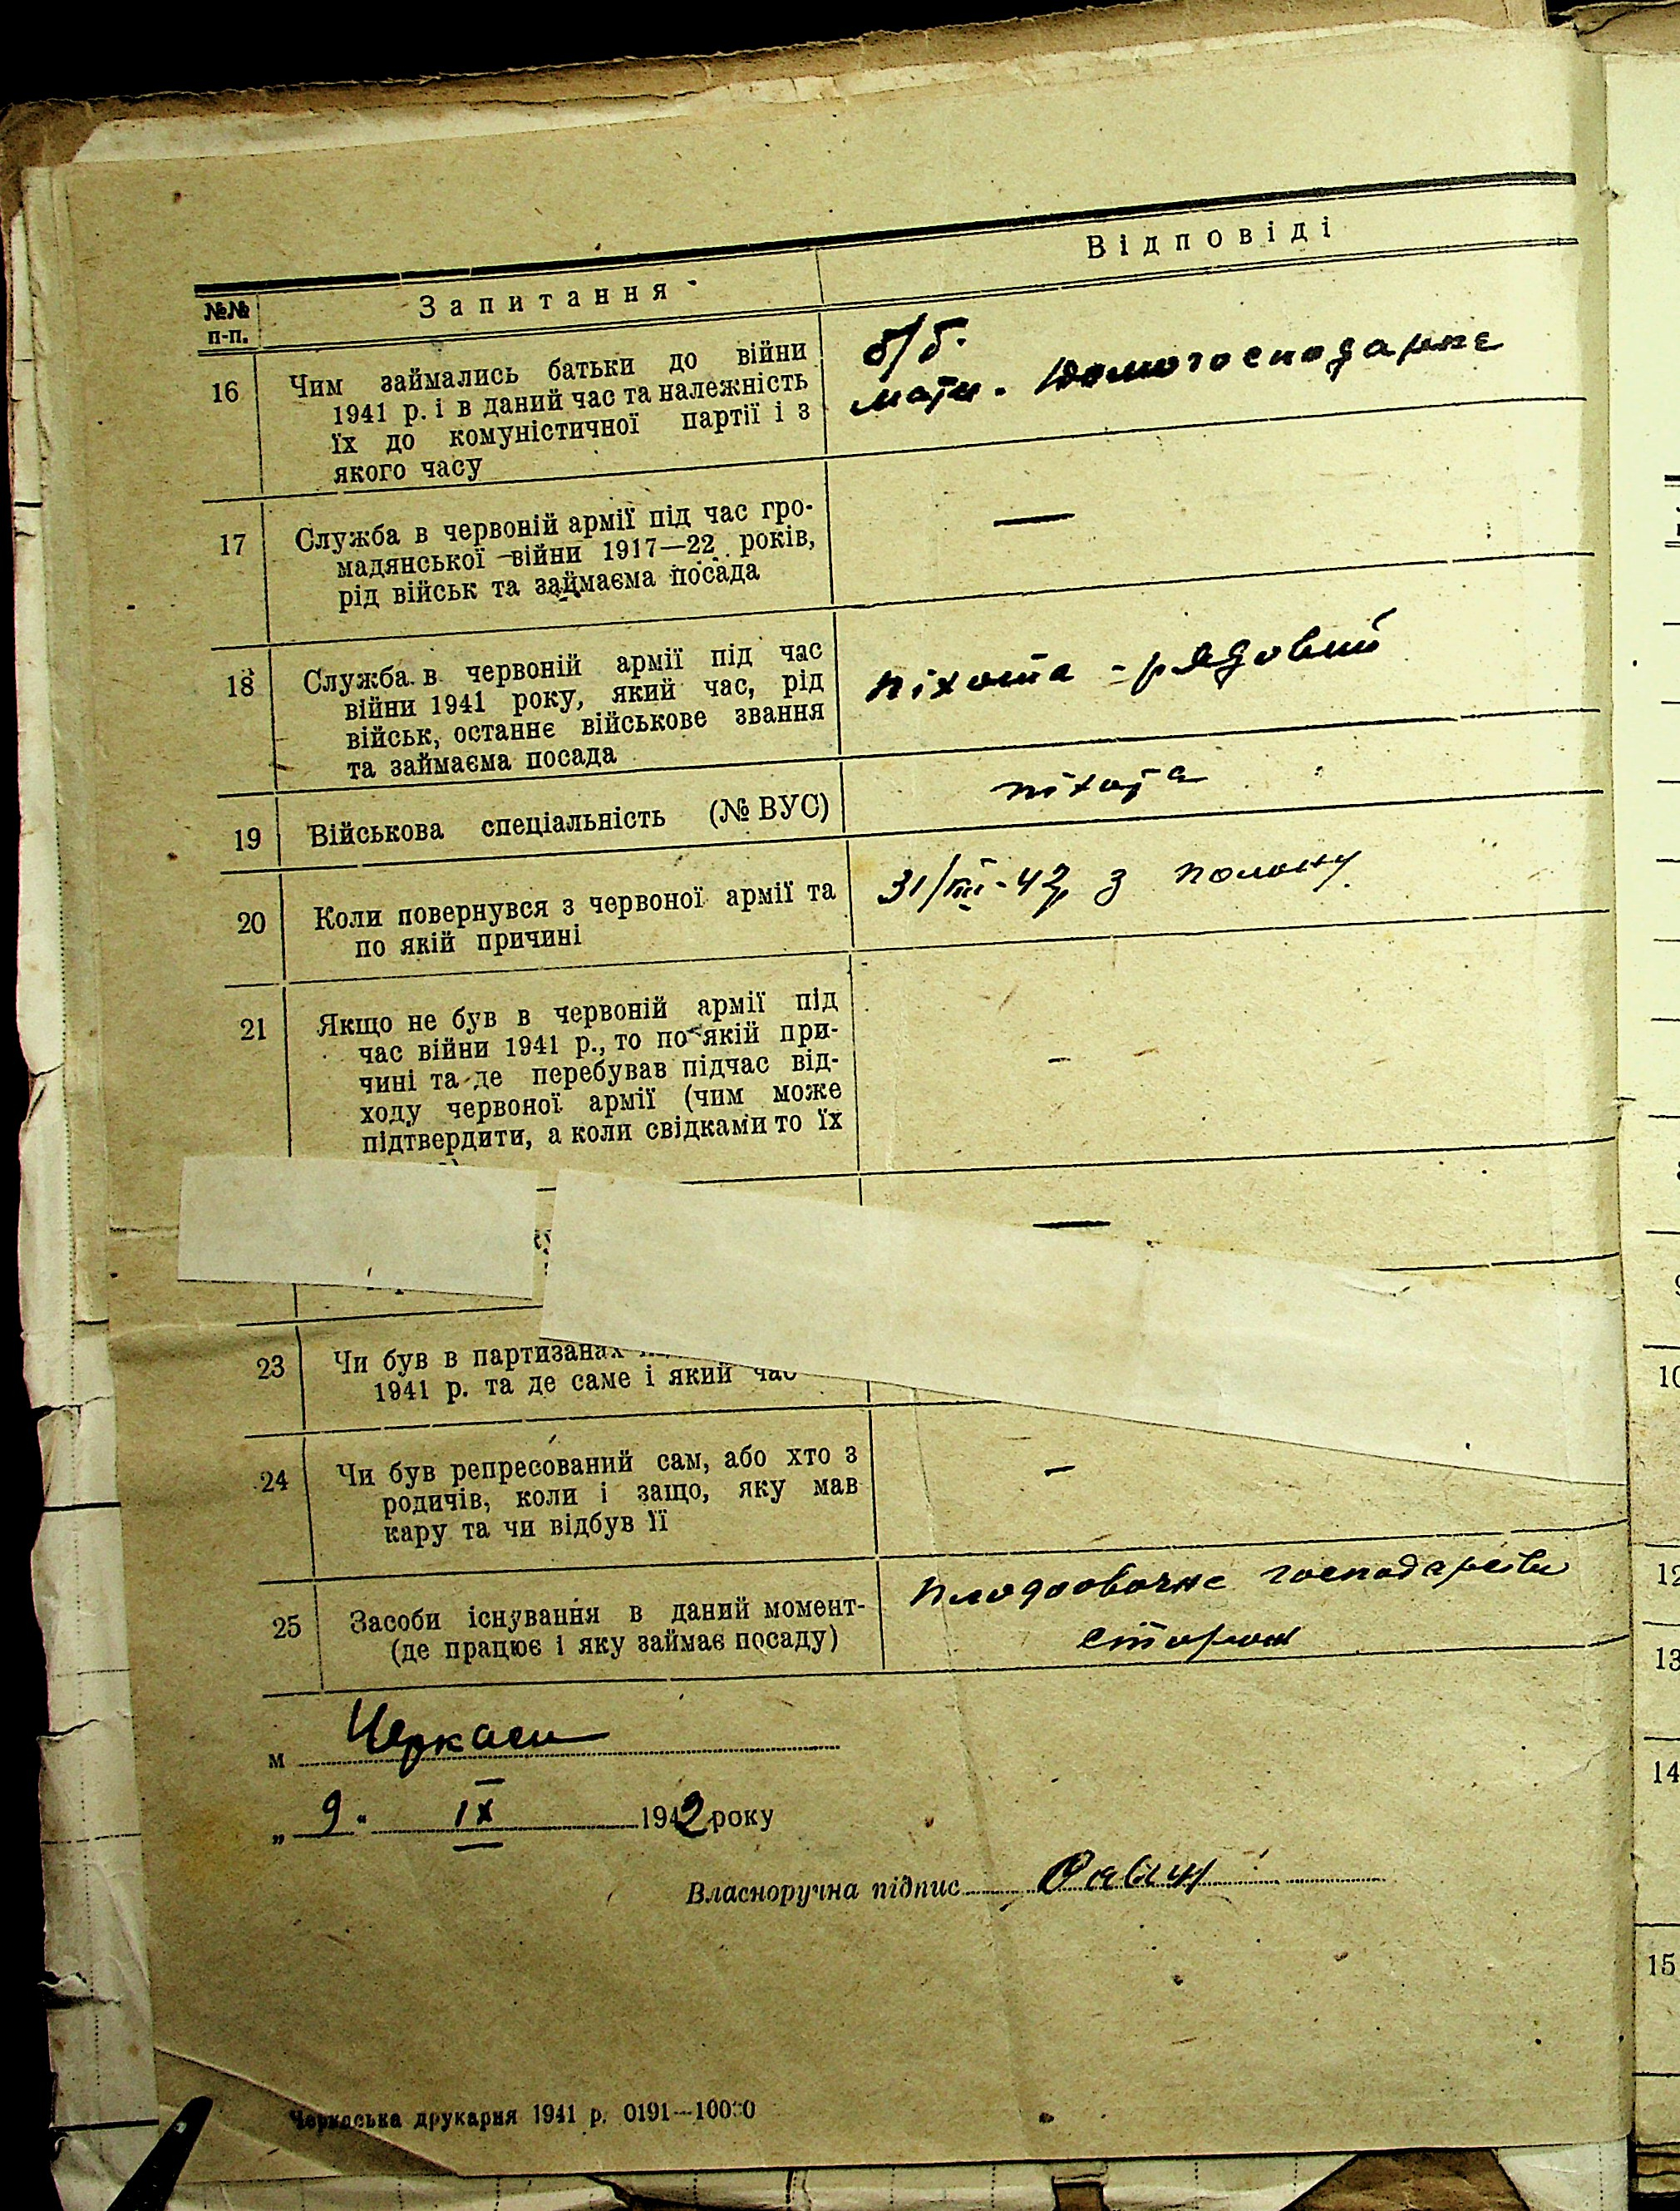 №№ п-п. Запитання Відповіді
16 Чим займались батьки до війни
1941 р. і в даний час та належність
їх до комуністичної партії і з
якого часу
б/б.
мати. домогосподарке
17 Служба в червоній армії під час гро-
мадянської війни 1917—22 років,
рід військ та займаєма посада
—
18 Служба в червоній армії під час
війни 1941 року, який час, рід
військ, останнє військове звання
та займаєма посада
піхота - рядовий
19 Військова спеціальність (№ ВУС)
піхота
20 Коли повернувся з червоної армії та
по якій причині
з полону
21 Якщо не був в червоній армії під
час війни 1941 р., то по якій при-
чині та де перебував підчас від-
ходу червоної армії (чим може
підтвердити, а коли свідками то їх
-
—
23 Чи був в партизанах
1941 р. та де саме і який час
24 Чи був репресований сам, або хто з
родичів, коли і защо, яку мав
кару та чи відбув її
-
25 Засоби існування в даний момент-
(де працює і яку займає посаду)
плодоовочне господарство
сторож
м Черкаси
„ 9 " IX 1942 року
Власноручна підпис
Черкаська друкарня 1941 р. 0191—10000
9
10
12
13
14
15